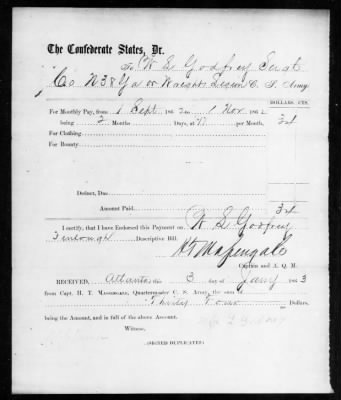 The Confederate States, Dr.
To W L Godfrey Sergt
Co N 38 Ga or Wrights Legion C. S. Army
DOLLARS. CTS.
For Monthly Pay, from 1 Sept 1862 to 1 Nov 1862
being 2 Months Days, at 17 per Month, 34
For Clothing
For Bounty
Deduct, Due
Amount Paid 34
I certify, that I have Endorsed this Payment on W L Godfrey
Furlough Descriptive Bill.
H T Massengale
Captain and A. Q. M.
RECEIVED, Atlanta this 3 day of Jany 1863
from Capt. H. T. MASSENGALE, Quartermaster C. S. Army, the sum of
Thirty Four Dollars.
being the Amount, and in full of the above Account.
Witness.
(SIGNED DUPLICATES)